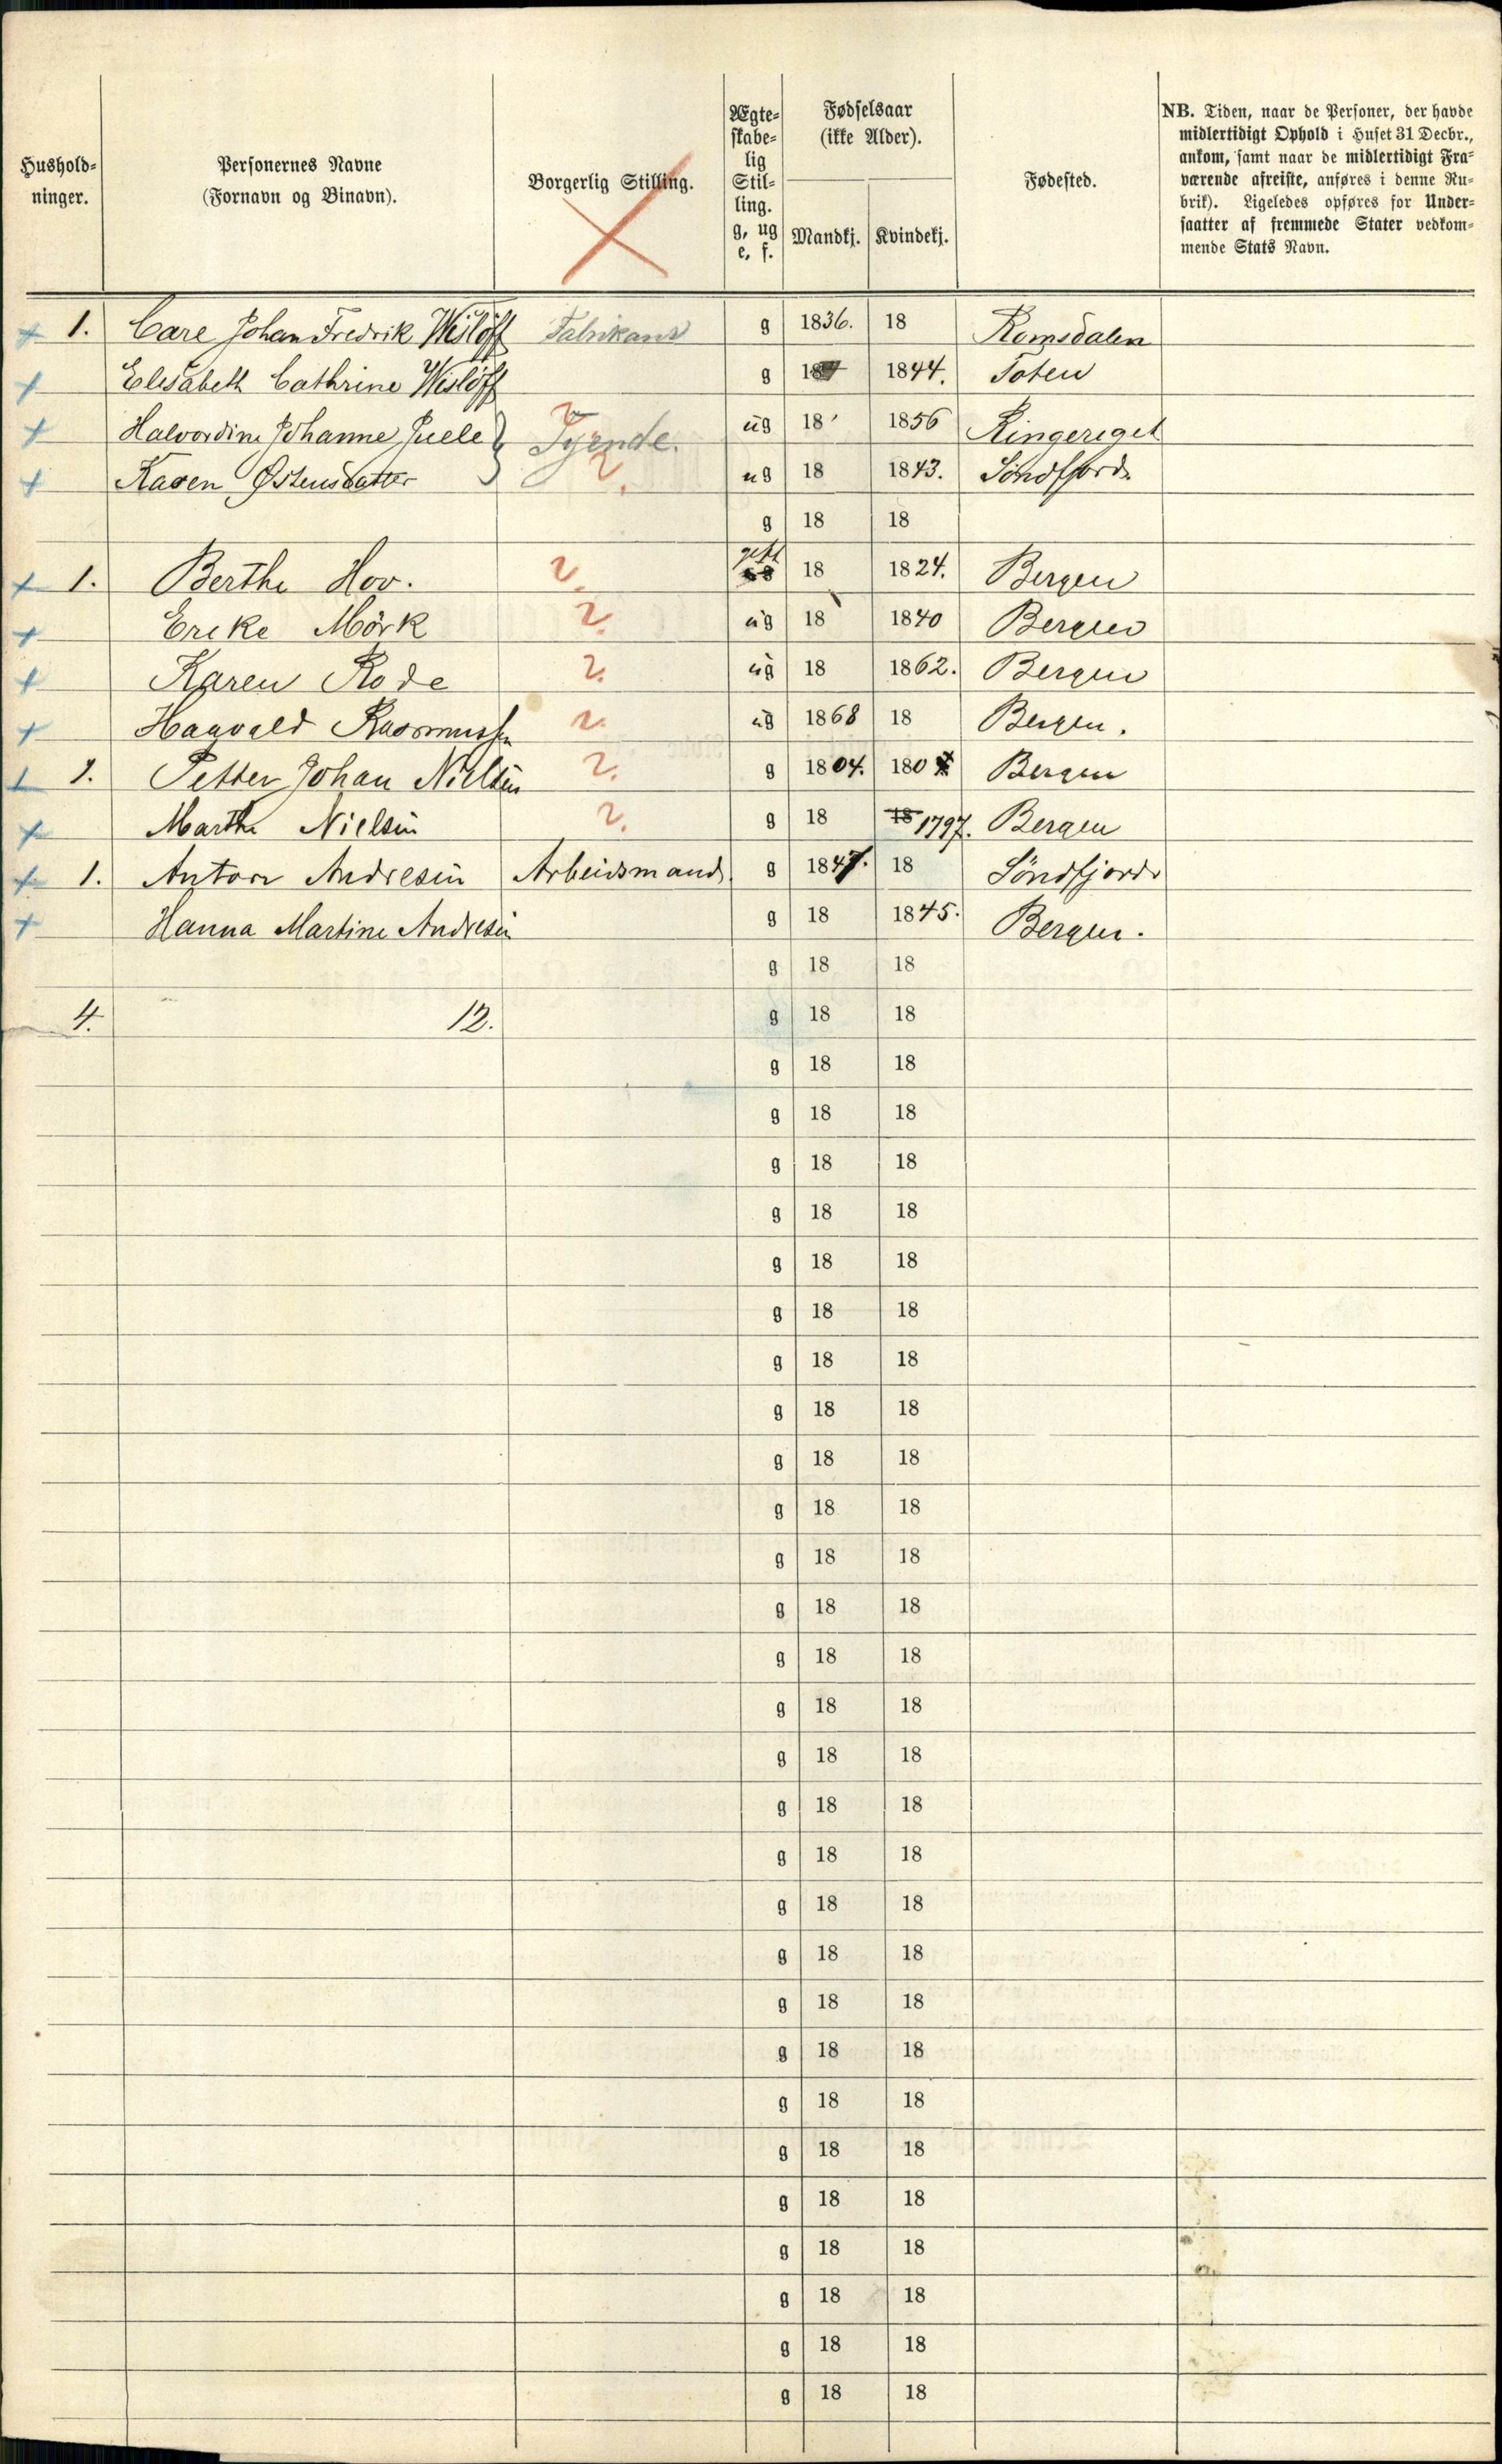 Hushold-
ninger.
Personernes Navne
(Fornavn og Binavn).
Borgerlig Stilling.
Ægte-
skabe-
lig
Stil-
ling.
g, ug
e, f.
Fødselsaar
(ikke Alder).
Mandkj. Kvindekj.
Fødested.
NB. Tiden, naar de Personer, der havde
midlertidigt Ophold i Huset 31 Decbr.,
ankom, samt naar de midlertidigt Fra-
værende afreiste, anføres i denne Ru-
brik). Ligeledes opføres for Under-
saatter af fremmede Stater vedkom-
mende Stats Navn.
1. Carl Johan Fredrik Wislöff Fabrikant g 1836. 18 Romsdalen
Elisabeth Cathrine Wislöff g 18 1844. Toten
Halvordine Johanne Juele } Tyende. ug 18 1856 Ringeriget
Karen Østensdatter ug 18 1843. Söndfjord.
g 18 18
1. Berthe Hov. 2. 18 1824. Bergen
Ericke Mörk 2. ug 18 1840 Bergen
Karen Rode 2. ug 18 1862. Bergen
Hagvald Rasmussen 2. ug 1868 18 Bergen.
1. Petter Johan Nielsen 2. g 1804. 180 Bergen
Marthe Nielsen 2. g 18 18 1797. Bergen
1. Anton Andresen Arbeidsmand g 1847. 18 Söndfjord
Hanna Martine Andresen g 18 1845. Bergen.
g 18 18
4. 12. g 18 18
g 18 18
g 18 18
g 18 18
g 18 18
g 18 18
g 18 18
g 18 18
g 18 18
g 18 18
g 18 18
g 18 18
g 18 18
g 18 18
g 18 18
g 18 18
g 18 18
g 18 18
g 18 18
g 18 18
g 18 18
g 18 18
g 18 18
g 18 18
g 18 18
g 18 18
g 18 18
g 18 18
g 18 18